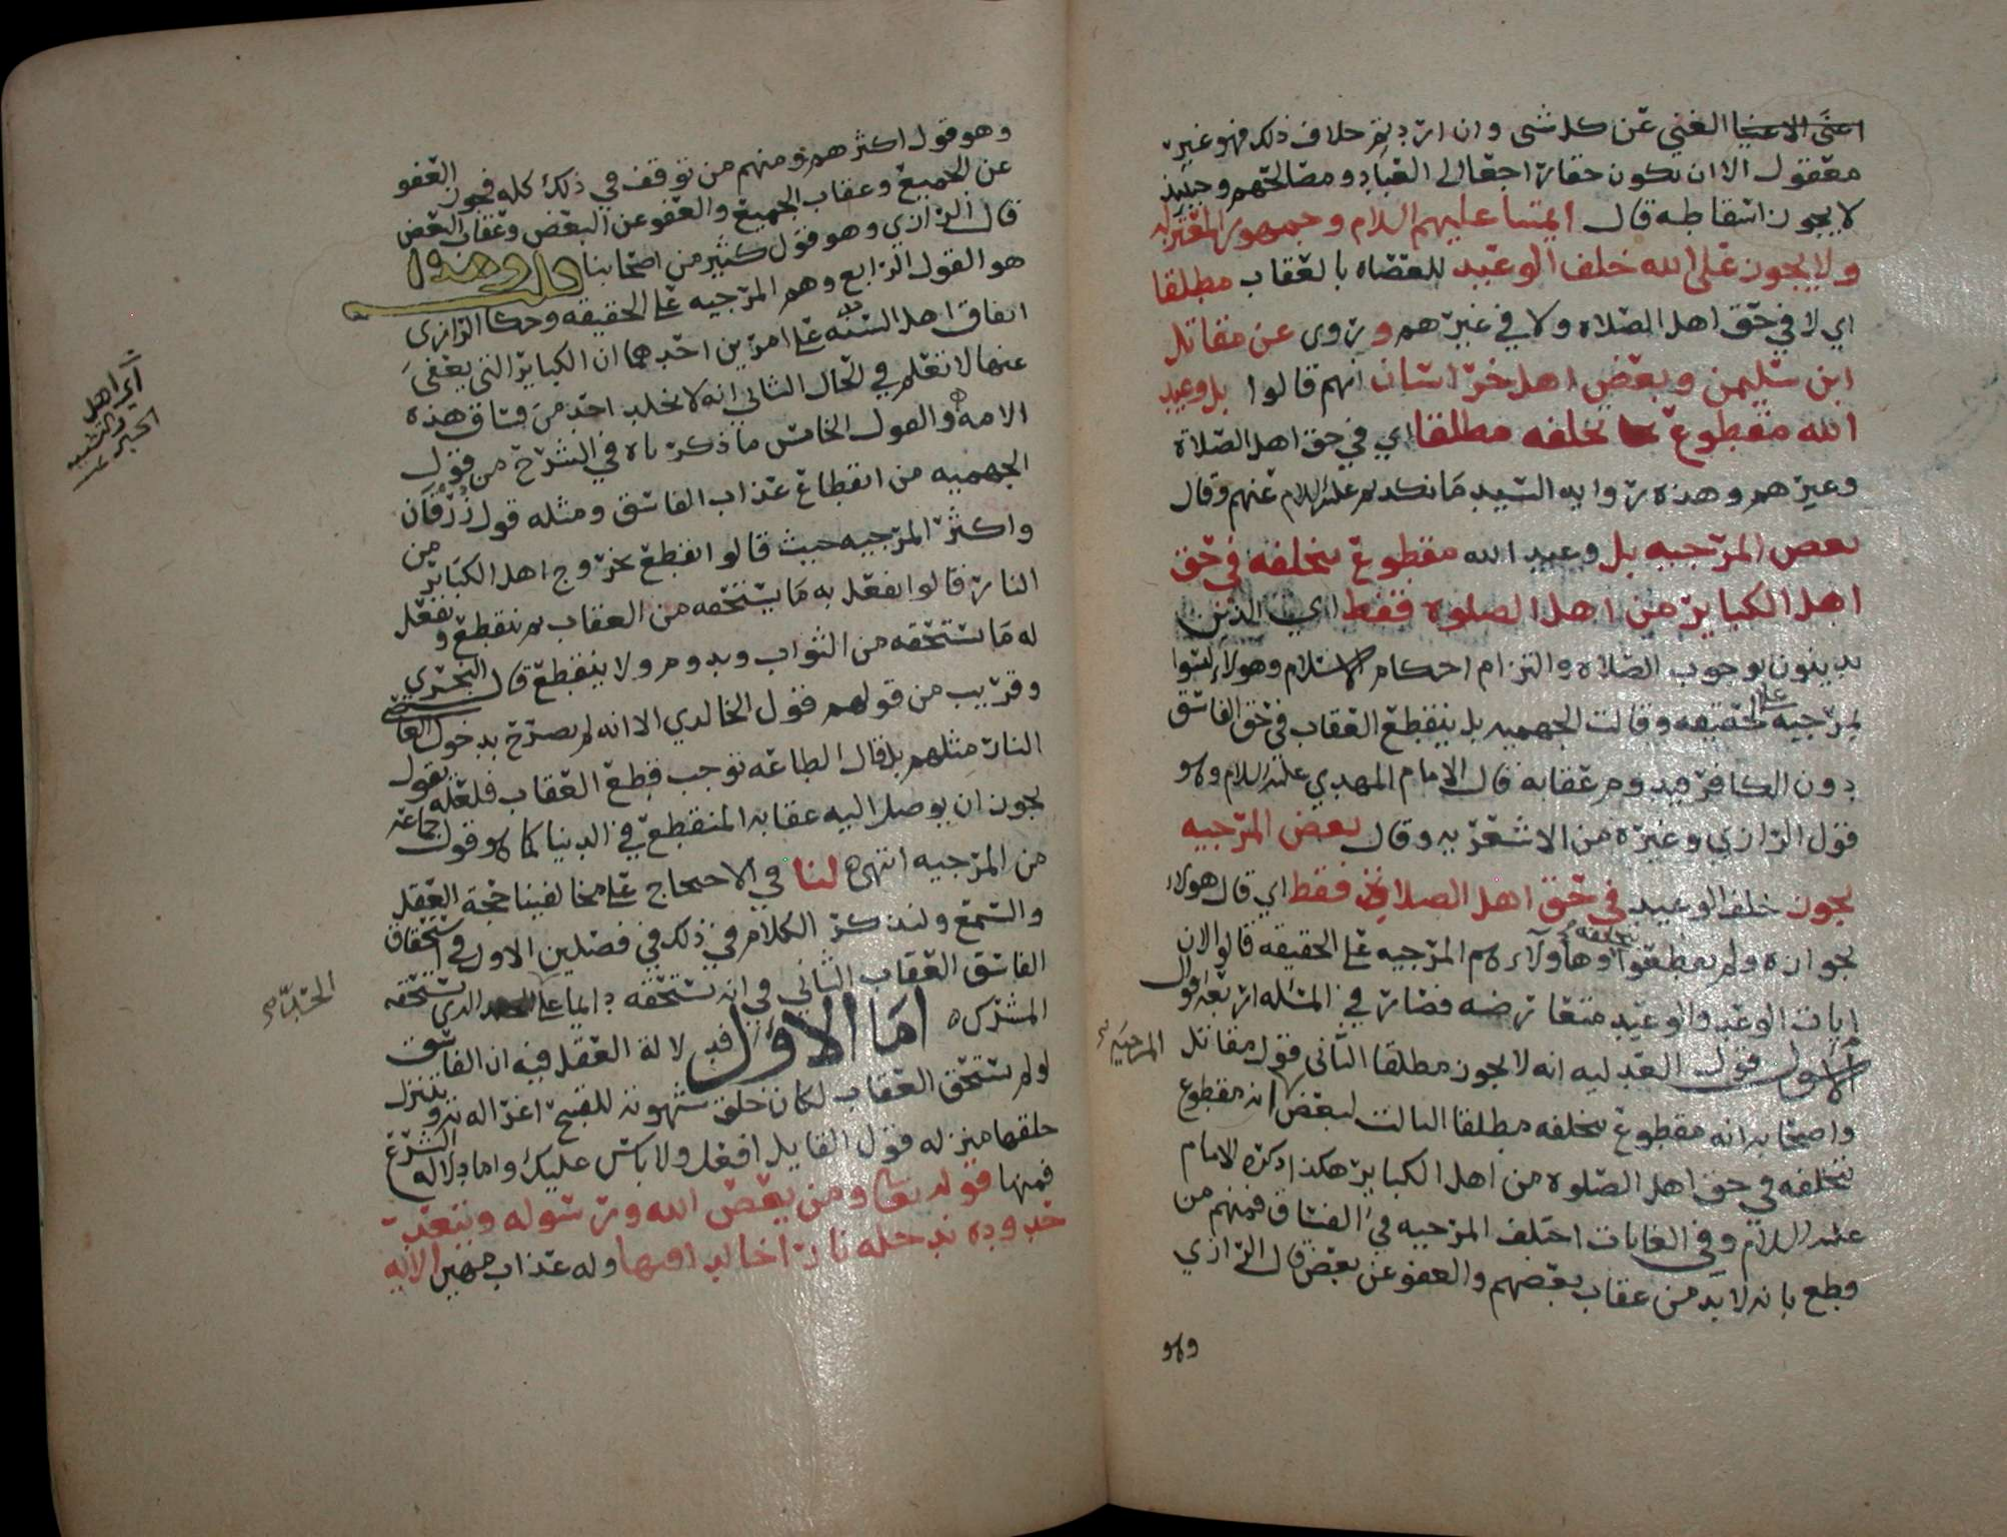 اغنى الاغنيا الغني عن كل شى وان اردتم خلاف ذلك فهو غير
معقول الا ان يكون حقا راجعا الى العباد ومصالحهم وحينيذ
لا يجوز اسقاطه قال ايمتنا عليهم السلام وجمهور المعتزله
ولا يجوز على الله خلف الوعيد للعصاه بالعقاب مطلقا
اي لا في حق اهل الصلاه ولا في غيرهم وروى عن مقاتل
ابن سليمن وبعض اهل خراسان انهم قالوا بل وعيد
الله مقطوع بخلفه مطلقا اي في حق اهل الصلاة
وغيرهم وهذه روايه السيد مانكديم عليه السلام عنهم وقال
بعض المرجيه بل وعيد الله مقطوع بخلفه في حق
اهل الكباير من اهل الصلوه فقط اي الذين
يدينون بوجوب الصلاه والتزام احكام الاسلام وهولاء ليسوا
بمرجيه على الحقيقه وقالت الجهميه بل ينقطع العقاب في حق الفاسق
دون الكافر فيدوم عقابه قال الامام المهدي عليه السلام وهو
قول الرازي وغيره من الاشعريه وقال بعض المرجيه
يجوز خلف الوعيد في حق اهل الصلاه فقط اي قال هولاء
بجوازه ولم يقطعوا بخلفه وهاولاء هم المرجيه على الحقيقه قالوا لان
ايات الوعد والوعيد متعارضه فصار في المسئله اربعه اقوال
الاول قول العدليه انه لا يجوز مطلقا الثاني قول مقاتل
المرجيه
واصحابه انه مقطوع بخلفه مطلقا الثالث لبعض انه مقطوع
بخلفه في حق اهل الصلوه من اهل الكباير هكذا ذكره الامام
عليه السلام وفي الغايات اختلف المرجيه في الفساق فمنهم من
قطع بانه لا بد من عقاب بعضهم والعفو عن بعض قال الرازي
وهو
وهو قول اكثرهم ومنهم من توقف في ذلك كله فجوز العفو
عن الجميع وعقاب الجميع والعفو عن البعض وعقاب البعض
قال الرازي وهو قول كثير من اصحابنا قلت وهذا
هو القول الرابع وهم المرجيه على الحقيقه وحكا الرازى
اتفاق اهل السنه على امرين احدهما ان الكباير التي يعفى
اي اهل
الجبر والتشبيه
عنها لا تعلم في الحال الثاني انه لا يخلد احد من فساق هذه
الامه والقول الخامس ما ذكرناه في الشرح من قول
الجهميه من انقطاع عذاب الفاسق ومثله قول زرقان
واكثر المرجيه حيث قالوا انقطع بخروج اهل الكباير من
النار قالوا يفعل به ما يستحقه من العقاب ثم ينقطع ويفعل
له ما يستحقه من الثواب ويدوم ولا ينقطع قال النجري
وقريب من قولهم قول الخالدي الا انه لم يصرح بدخول الفاسق
النار مثلهم بل قال الطاعه توجب قطع العقاب فلعله يقول
يجوز ان يوصل اليه عقابه المنقطع في الدنيا كما هو قول جماعه
من المرجيه انتهى لنا في الاحتجاج على مخالفينا حجة العقل
والسمع ولنذكر الكلام في ذلك في فصلين الاول في استحقاق
الفاسق العقاب الثاني في انه يستحقه دايما على الحد الذي يستحقه
الحد
المشرك اما الاول فدلالة العقل فيه ان الفاسق
لو لم يستحق العقاب لكان خلق شهوته للقبيح اغرا له به وينزل
خلقها منزله قول القايل افعل ولا باس عليك واما دلاله الشرع
فمنها قوله تعالى ومن يعص الله ورسوله ويتعد
حدوده يدخله نارا خالدا فيها وله عذاب مهين الايه